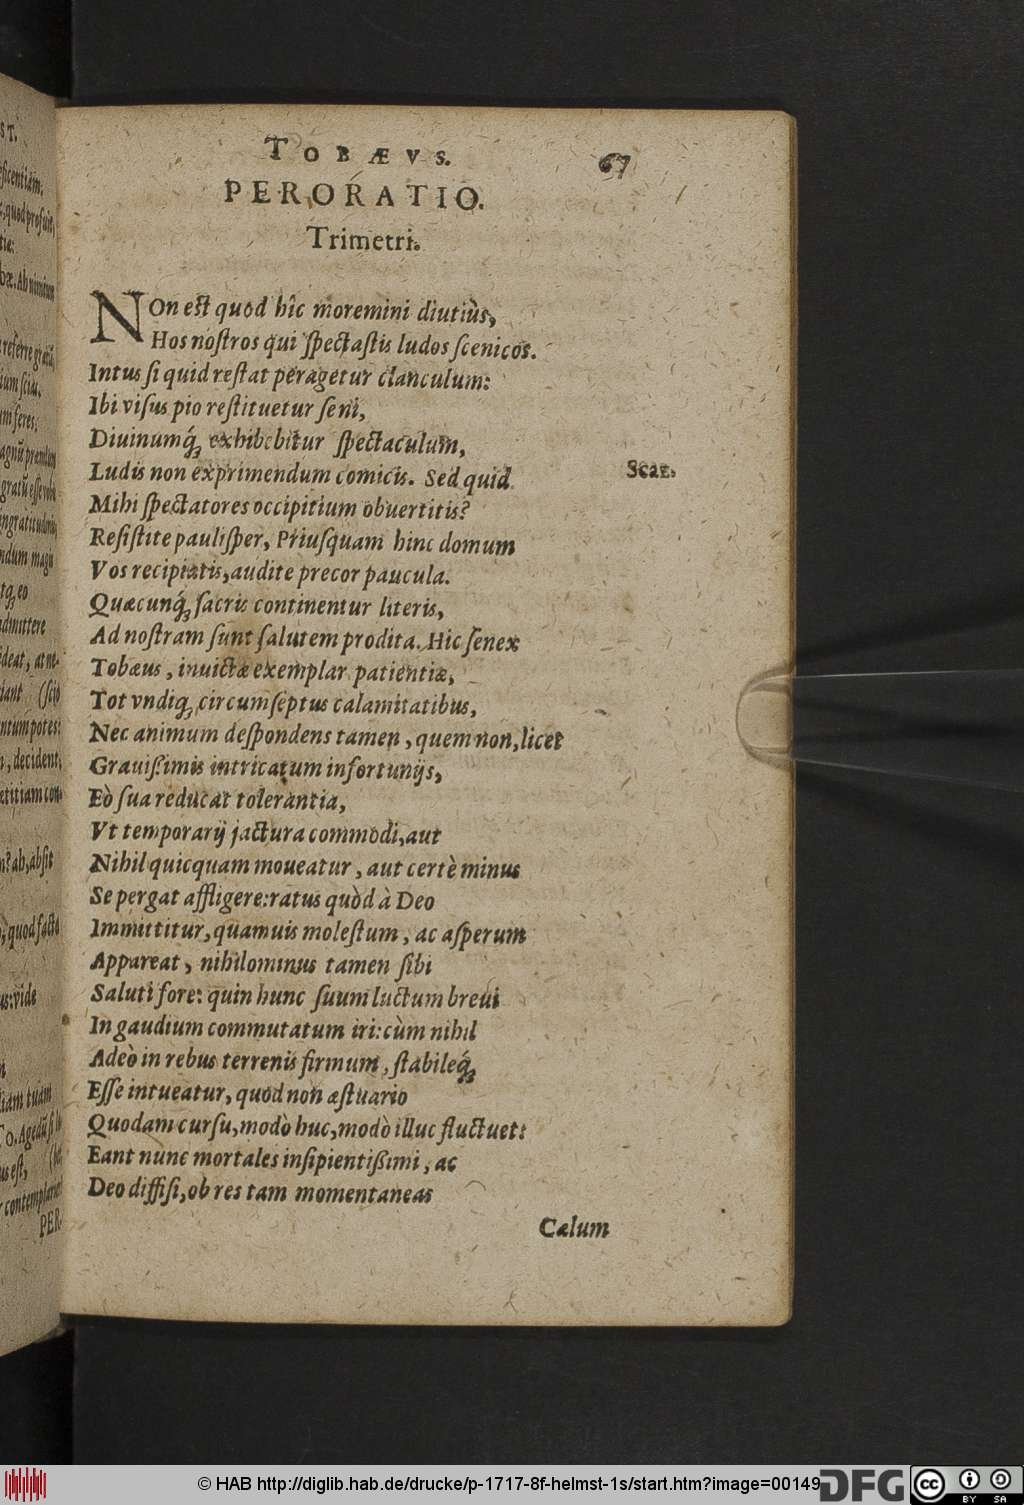 TOBÆVS.
67
PERORATIO.
Trimetri.
NOn est quod hîc moremini diutiùs,
Hos nostros qui spectastis ludos scenicos.
Intus si quid restat peragetur clanculum:
Ibi visus pio restituetur seni,
Diuinumq́; exhibebitur spectaculum,
Ludis non exprimendum comicis. Sed quid
Scaz.
Mihi spectatores occipitium obuertitis?
Resistite paulisper, Priusquam hinc domum
Vos recipiatis, audite precor paucula.
Quæcunq́; sacris continentur literis,
Ad nostram sunt salutem prodita. Hic senex
Tobæus, inuictæ exemplar patientiæ,
Tot vndiq; circumseptus calamitatibus,
Nec animum despondens tamen, quem non, licet
Grauißimis intricatum infortunijs,
Eò sua reducat tolerantia,
Vt temporarij jactura commodi, aut
Nihil quicquam moueatur, aut certè minus
Se pergat affligere: ratus quòd à Deo
Immittitur, quamuis molestum, ac asperum
Appareat, nihilominus tamen sibi
Saluti fore: quin hunc suum luctum breui
In gaudium commutatum iri: cùm nihil
Adeò in rebus terrenis firmum, stabileq́;
Esse intueatur, quod non æstuario
Quodam cursu, modò huc, modò illuc fluctuet:
Eant nunc mortales insipientißimi, ac
Deo diffisi, ob res tam momentaneas
Cælum
© HAB http://diglib.hab.de/drucke/p-1717-8f-helmst-1s/start.htm?image=00149
DFG
cc BY SA